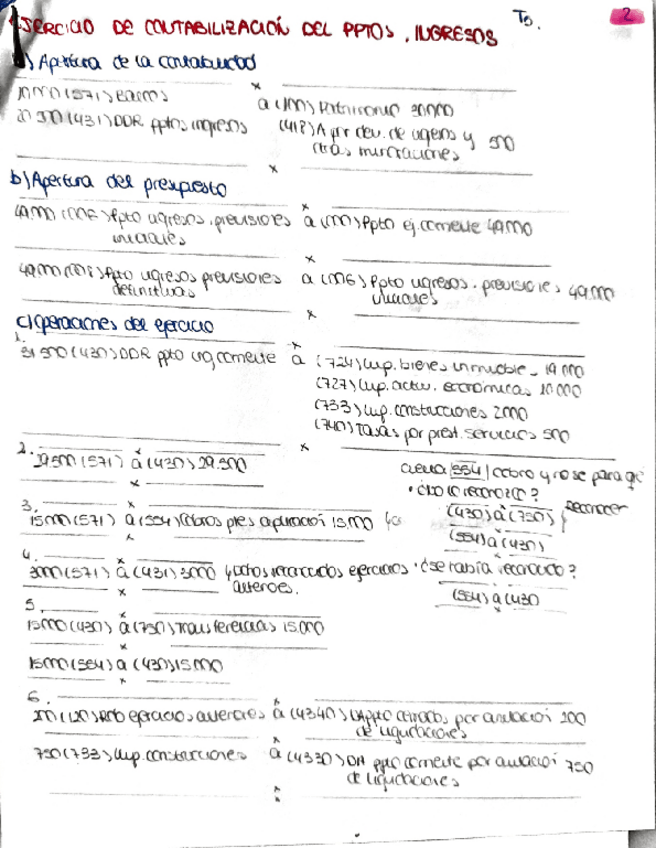 EJERCICIO DE CONTABILIZACIÓN DEL PPTOS. INGRESOS To. 2
a) Apertura de la contabilidad
(571) Bancos a (100) Patrimonio 30000
(431) DDR pptos ingresos (418) A por dev. de ingreso y 500
otras minoraciones
b) Apertura del presupuesto
49.000 (006) Ppto ingresos. previsiones a (000) Ppto ej. corriente 49.000
iniciales
49.000 (008) Ppto ingresos previsiones a (006) Ppto ingresos. previsiones 49.000
definitivas iniciales
c) Operaciones del ejercicio
1.
31 500 (430) DDR ppto ing corriente a (724) Imp. bienes inmuebles 19.000
(727) Imp. activ. económicas 10.000
(733) Imp. construcciones 2000
(740) Tasas por prest. servicios 500
2. 29.500 (571) a (430) 29.500
cuenta 554 | cobro y no se para qe
· ¿No lo reconozco?
3. 15000 (571) a (554) Cobros ptes aplicación 15.000
(430) a (750) } Reconocer
(554) a (430)
4.
3000 (571) a (431) 3000 y dchos reconocidos ejercicios · ¿se había reconocido?
anteriores.
(554) a (430
5.
15000 (430) a (750) Transferencias 15.000
15000 (554) a (430) 15000
6.
200 (120) Rdo ejercicios anteriores a (4340) DAppto cerrados por anulación 200
de liquidaciones
750 (733) Imp. construcciones a (4330) DA ppto corriente por anulación 750
de liquidaciones